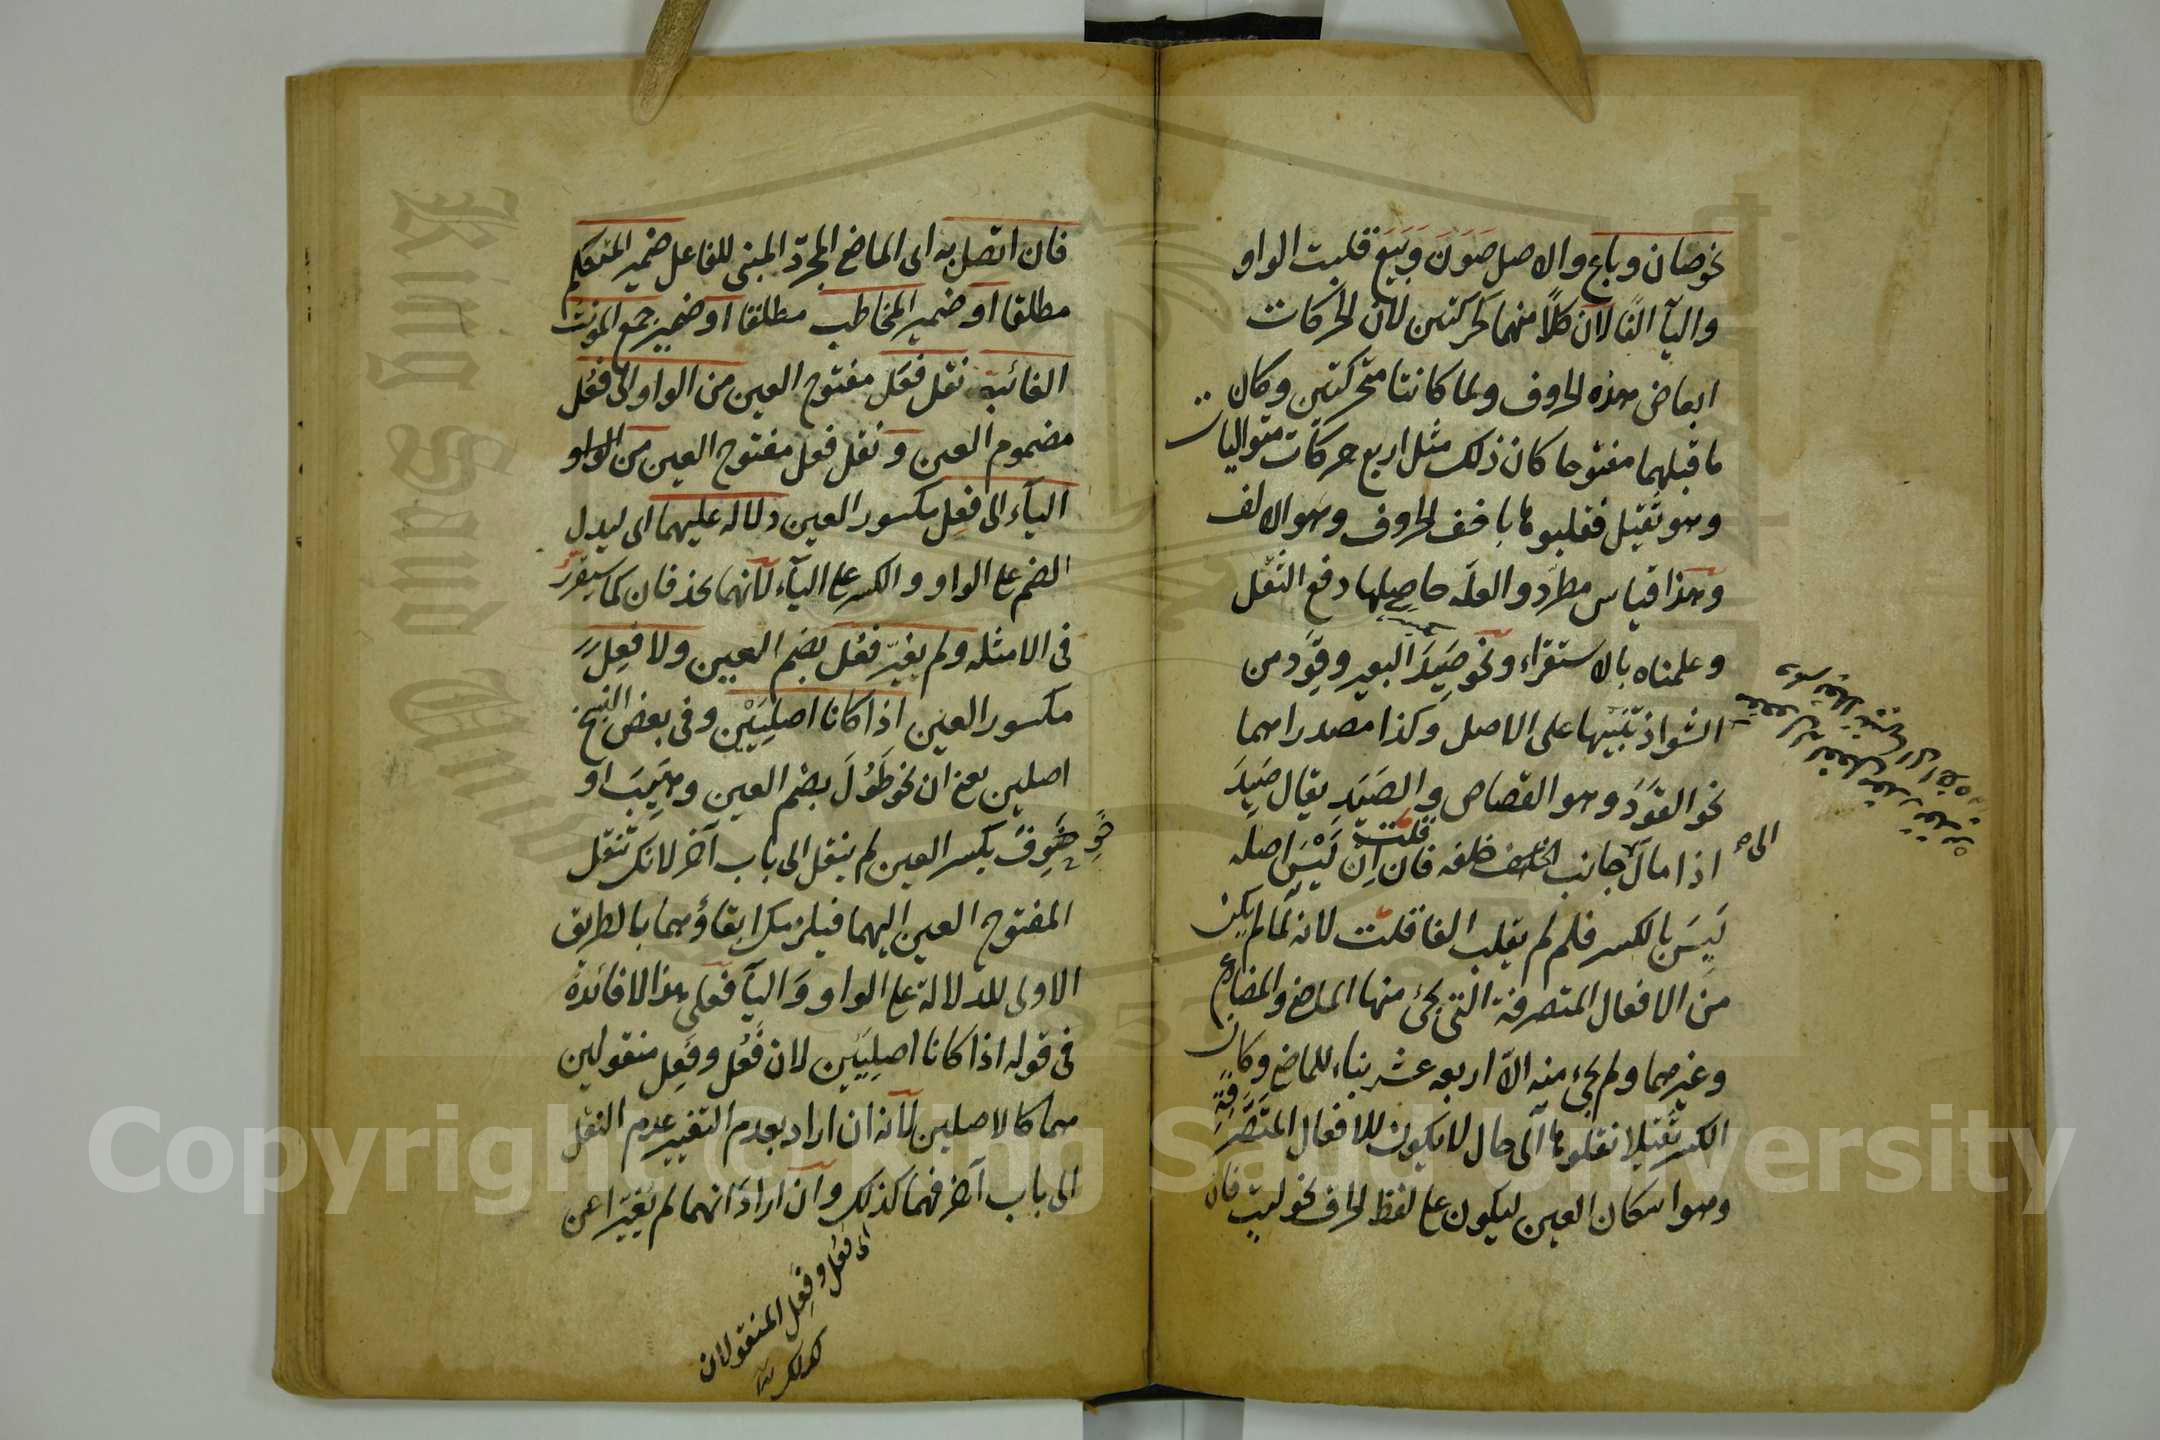 نحو صان وباع والاصل صَوَنَ وَبَيَعَ قلبت الواو
واليآ الفًا لان كلاً منهما كحركتين لان الحركات
ابعاض هذه الحروف ولما كانتا متحركتين وكان
ما قبلهما مفتوحا كان ذلك مثل اربع حركات متواليات
وهو ثقيل فقلبوهما باخف الحروف وهو الالف
وهذا قياس مطرد والعلة حاصلها دفع الثقل
وعلمناه بالاستقراء ونحو صَيِدَ البعير وقَوَد من
الشواذ تنبيها على الاصل وكذا مصدراهما
نحو القَوَدَ وهو القصاص والصَيَدِ يقال صَيِدَ
اذا مال الى جانب خلفه فان قلت اِن لَيْسَ اصله
لَيِسَ بالكسر فلم لم يقلب الفا قلت لانه لما لم يكن
من الافعال المتصرفة التى يجئ منها الماضى والمضارع
وغيرهما ولم يجئ منه الّا اربعه عشر بناء للماضى وكان
الكسر ثقيلا نقلوها الى حال لا يكون للافعال المتصَرِّفَةِ
وهو اسكان العين ليكون على لفظ الحرف نحو ليت فان
فان اتصل به اى الماضى المجرّد المبنى للفاعل ضمير المتكلم
مطلقا او ضمير المخاطب مطلقا او ضمير جمع المونث
الغائبة نقل فَعَل مفتوح العين من الواو الى فَعُل
مضموم العين و نقل فعل مفتوح العين من
اليآء الى فعِل مكسور العين دلالة عليهما اى ليدل
الضم على الواو والكسر على اليآء لانهما يحذفان كما سيقرّر
فى الامثلة ولم يغيّر فعُل بضم العين ولا فعِل
مكسور العين اذا كانا اصليَيْن وفى بعض النسخ
اصلين يعنى ان نحو طَوُلَ بضم العين وهَيِبَ او
خَوِف بكسر العين لم ينقل الى باب آخر لانك تنقل
المفتوح العين اليهما فيلزمك ابقاؤهما بالطريق
الاولى للدلالة على الواو واليآ فعلى هذا لا فائدة
فى قوله اذا كانا اصليَين لان فَعُل وفَعِل منقولين
هما كالاصلين لانه ان اراد بعدم التغيير عدم النقل
الى باب آخر فهما كذلك وان اراد انهما لم يُغيّرا عن
اى فعُل وفعِل المنقولان
كذلك